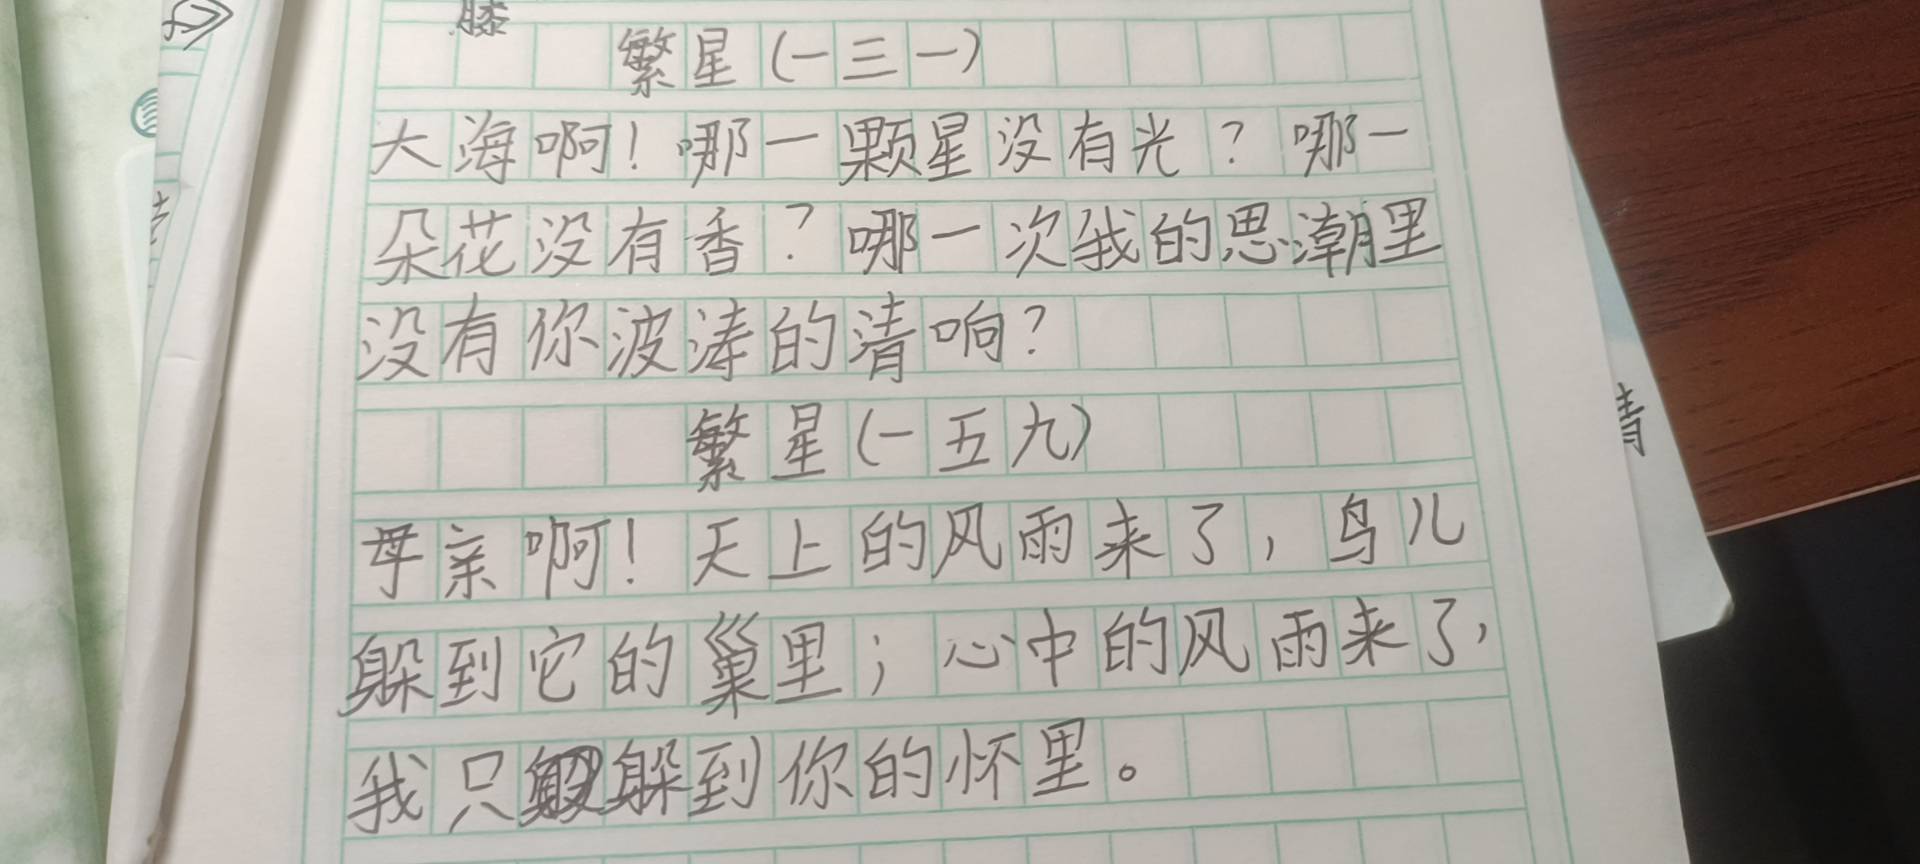 膝
繁星(一三一)
大海啊!哪一颗星没有光?哪一
朵花没有香?哪一次我的思潮里
没有你波涛的清响?
繁星(一五九)
母亲啊!天上的风雨来了,鸟儿
躲到它的巢里;心中的风雨来了,
我只躲到你的怀里。